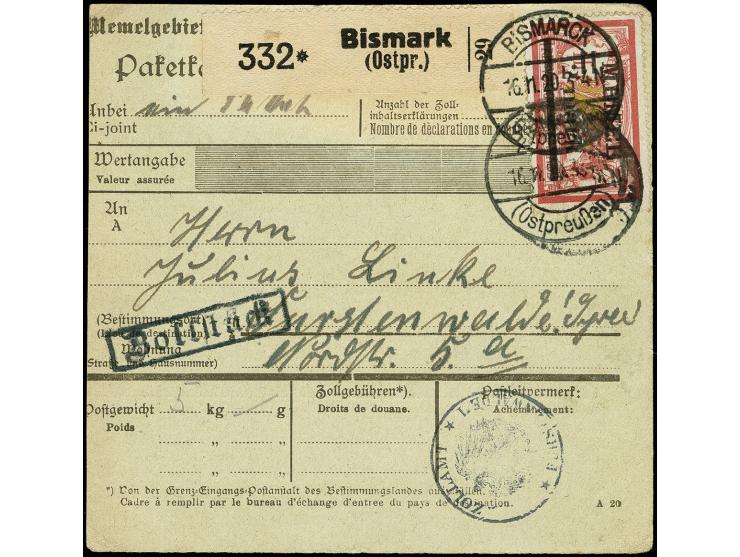 Memelgebiet
332* Bismark
(Ostpr.)
29
BISMARCK
16.11.20
Paketka
Anbei ein
Ci-joint
Anzahl der Zoll-
inhaltserklärungen
Nombre de déclarations en
Wertangabe
Valeur assurée
(Ostpreußen)
An
A
Herrn
Julius Linke
(Bestimmungsort)
Fürstenwalde/Spree
Zollstück
Wohnung
(Straße und Hausnummer)
Nordstr. 5a
Postgewicht 5 kg — g
Poids
Zollgebühren*).
Droits de douane.
Postleitvermerk:
Acheminement:
„ „
„ „
ZOLLAMT
*) Von der Grenz-Eingangs-Postanstalt des Bestimmungslandes auszufüllen.
Cadre à remplir par le bureau d'échange d'entrée du pays de destination.
A 20